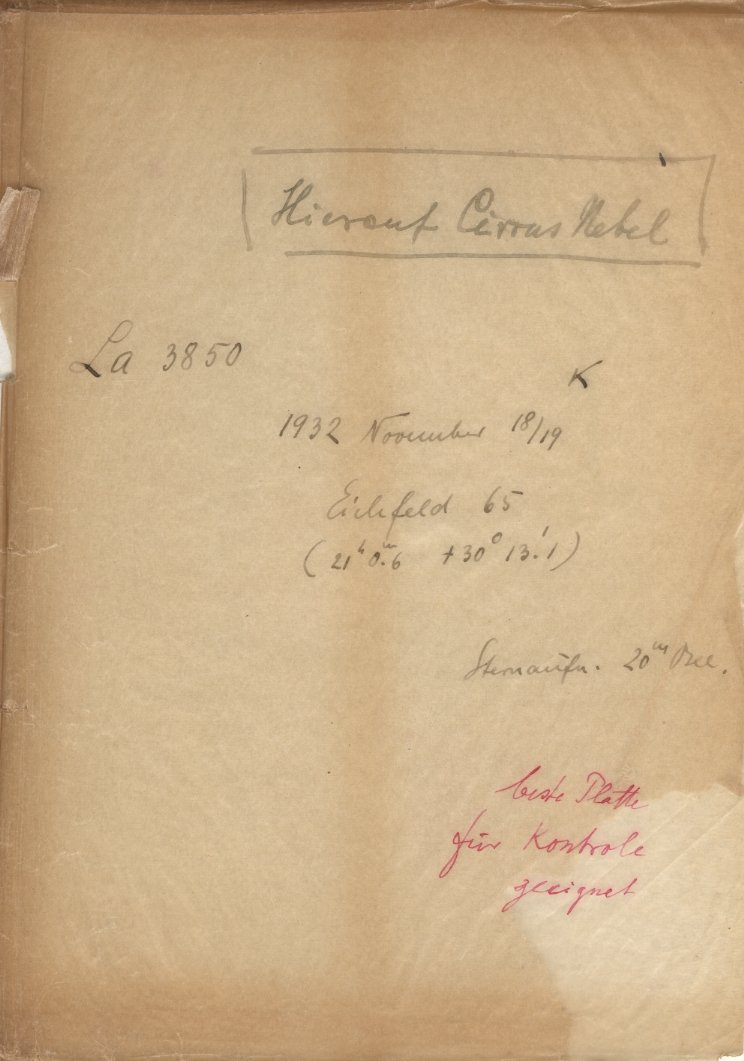 Hierauf Cirrus Nebel
La 3850
K
1932 November 18/19
Eichfeld 65
(21ʰ 0.ᵐ6 +30° 13.'1)
Sternaufn. 20ᵐ
beste Platte
für Kontrole
geeignet